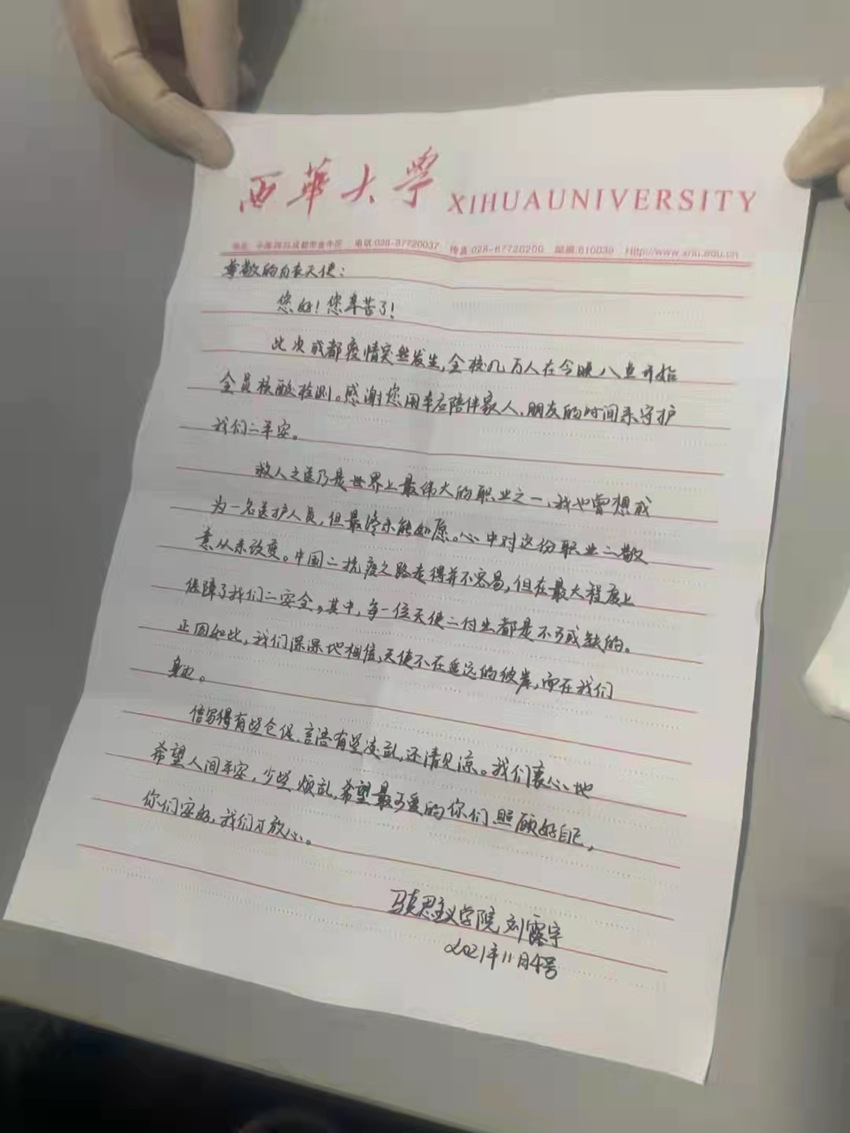 西華大学 XIHUAUNIVERSITY
地址: 中国四川成都市金牛区 电话:028-87720037 传真:028-87720200 邮编:610039 Http://www.xhu.edu.cn
尊敬的白衣天使:
您好!您辛苦了!
此次成都疫情突然发生,全校几万人在今晚八点开始
全员核酸检测。感谢您用本应陪伴家人、朋友的时间来守护
我们二平安。
救人之医乃是世界上最伟大的职业之一,我也曾想成
为一名医护人员,但最终未能如愿。心中对这份职业二敬
意从未改变。中国二抗疫之路走得并不容易,但在最大程度上
保障了我们二安全。其中,每一位天使二付出都是不可或缺的。
正因如此,我们深深地相信,天使不在遥远的彼岸,而在我们
身边。
信写得有些仓促,言语有些凌乱,还请见谅。我们衷心地
希望人间平安,少些烦乱,希望最可爱的你们照顾好自己,
你们安好,我们才放心。
马克思主义学院 刘露宇
2021年11月4号